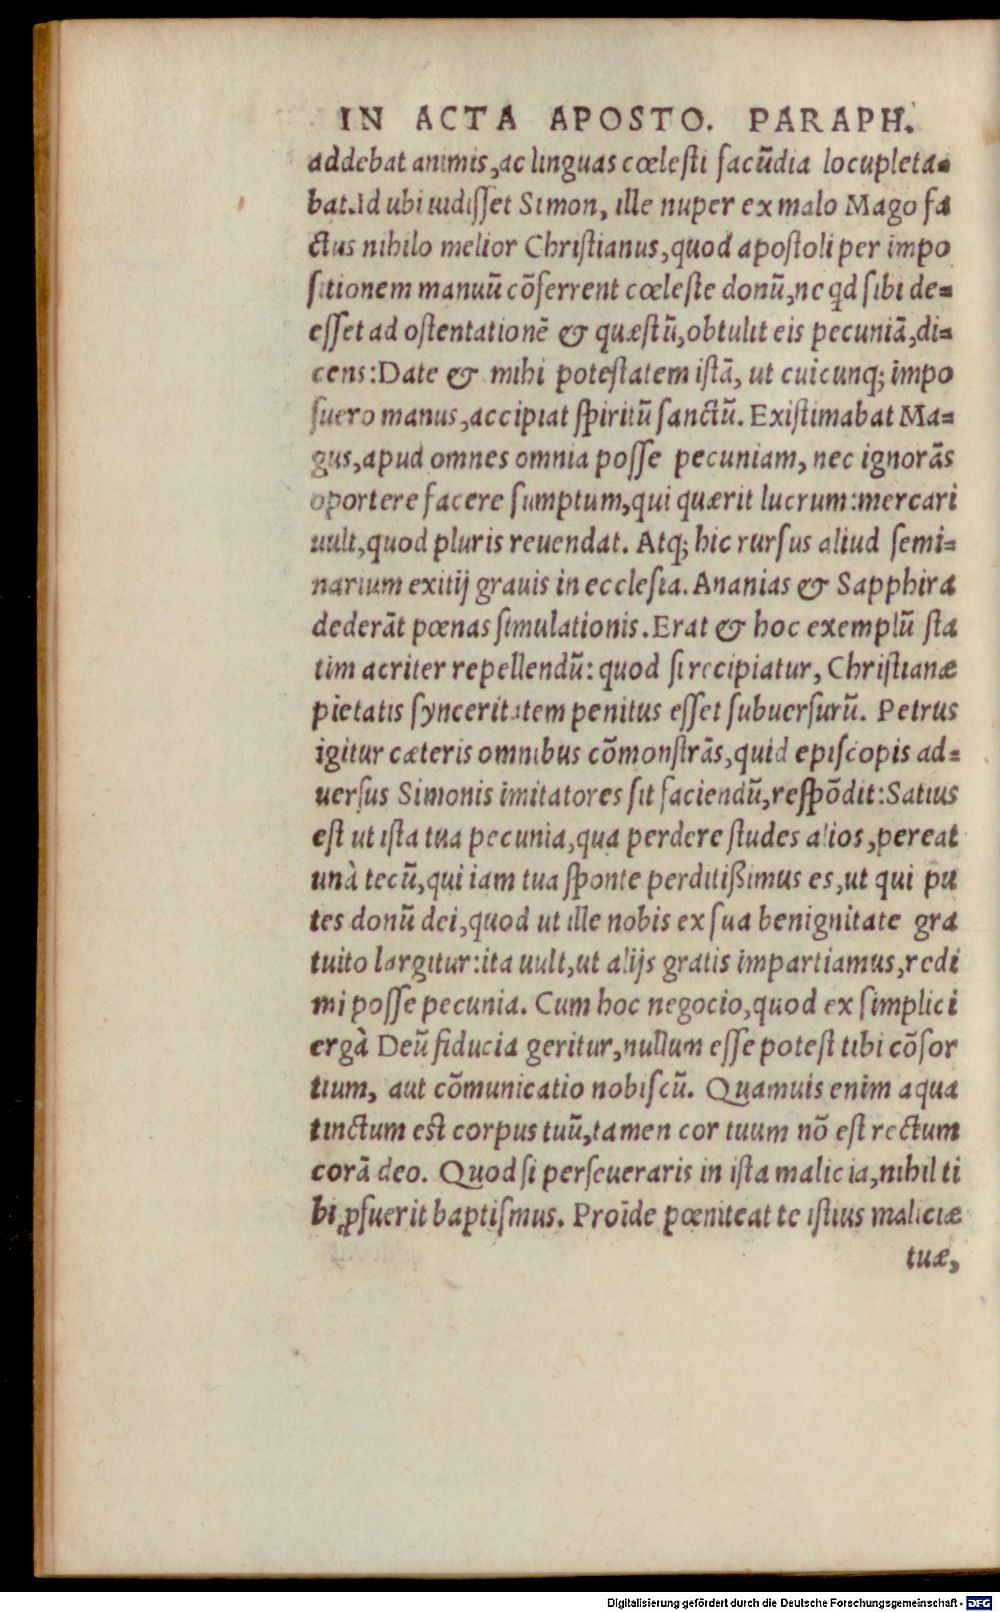 IN ACTA APOSTO. PARAPH.
addebat animis, ac linguas cœlesti facũdia locupleta-
bat. Id ubi uidisset Simon, ille nuper ex malo Mago fa
ctus nihilo melior Christianus, quod apostoli per impo
sitionem manuũ cõferrent cœleste donũ, ne qd sibi de-
esset ad ostentationẽ & quæstũ, obtulit eis pecuniã, di-
cens: Date & mihi potestatem istã, ut cuicunq; impo
suero manus, accipiat spiritũ sanctũ. Existimabat Ma-
gus, apud omnes omnia posse pecuniam, nec ignorãs
oportere facere sumptum, qui quærit lucrum: mercari
uult, quod pluris reuendat. Atq; hic rursus aliud semi-
narium exitij grauis in ecclesia. Ananias & Sapphira
dederãt pœnas simulationis. Erat & hoc exemplũ sta
tim acriter repellendũ: quod si recipiatur, Christianæ
pietatis synceritatem penitus esset subuersurũ. Petrus
igitur cæteris omnibus cõmonstrãs, quid episcopis ad-
uersus Simonis imitatores sit faciendũ, respõdit: Satius
est ut ista tua pecunia, qua perdere studes alios, pereat
unà tecũ, qui iam tua sponte perditißimus es, ut qui pu
tes donũ dei, quod ut ille nobis ex sua benignitate gra
tuito largitur: ita uult, ut alijs gratis impartiamus, redi
mi posse pecunia. Cum hoc negocio, quod ex simplici
ergà Deũ fiducia geritur, nullum esse potest tibi cõsor
tium, aut cõmunicatio nobiscũ. Quamuis enim aqua
tinctum est corpus tuũ, tamen cor tuum nõ est rectum
corã deo. Quod si perseueraris in ista malicia, nihil ti
bi ꝓfuerit baptismus. Proĩde pœniteat te istius maliciæ
tuæ,
Digitalisierung gefördert durch die Deutsche Forschungsgemeinschaft - DFG